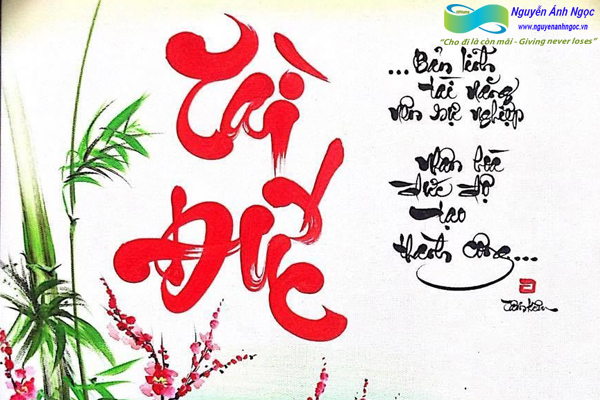 Nguyễn Ánh Ngọc
www.nguyenanhngoc.vn
"Cho đi là còn mãi - Giving never loses"
Tài
Đức
...Bản lĩnh
tài năng
nên sự nghiệp
Nhân
đức độ
tạo
thành công...